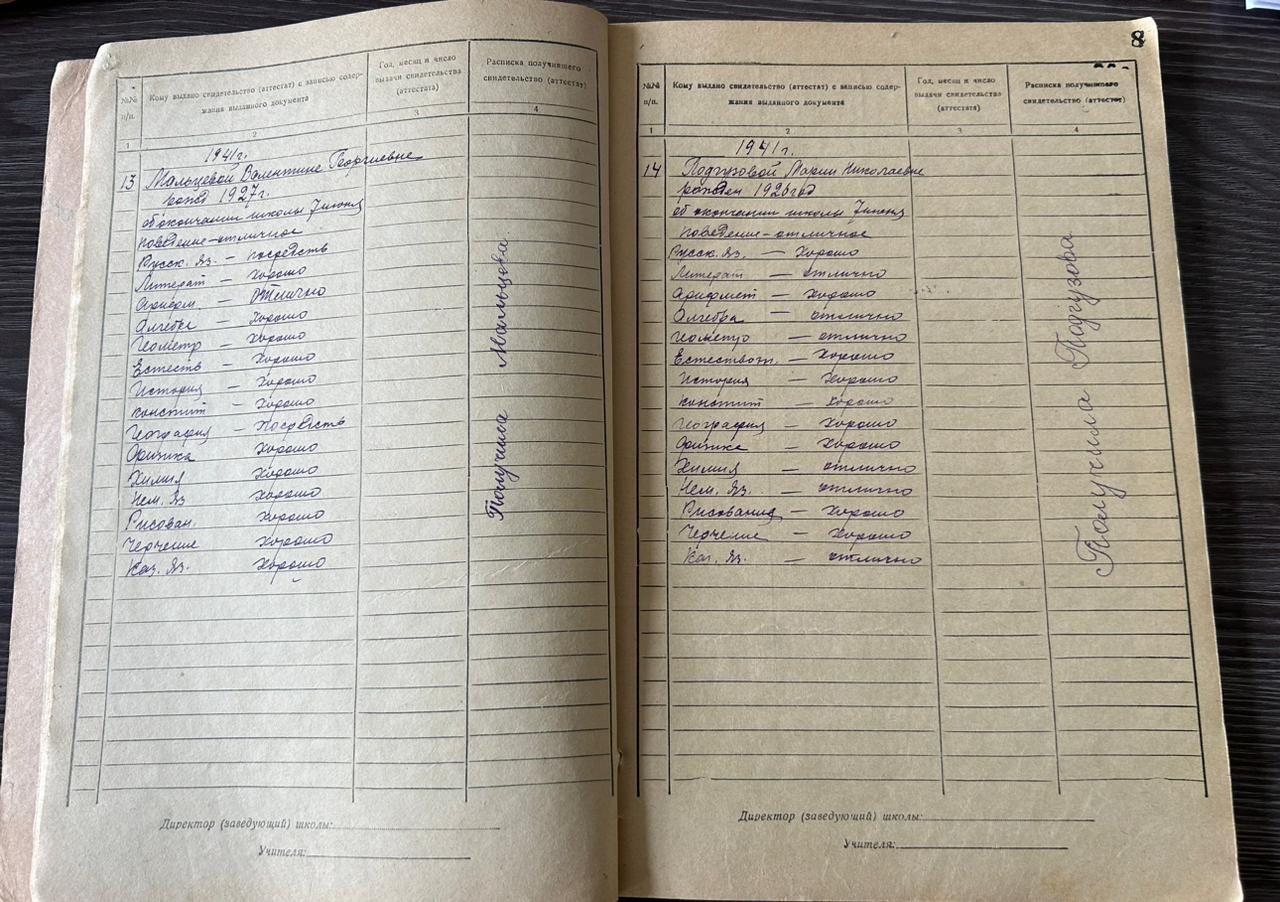 №№ п/п.
Кому выдано свидетельство (аттестат) с записью содер-
жания выданного документа
Год, месяц и число
выдачи свидетельства
(аттестата)
Расписка получившего
свидетельство (аттестат)
1
2
3
4
1941г.
13
Мальцевой Валентине Георгиевне
рожд 1927г.
об окончании школы 7июня
поведение-отличное
Русск. яз. – посредств
Литерат – хорошо
Арифм – отлично
Алгебра – хорошо
Геометр – хорошо
Естеств – хорошо
История – хорошо
Констит – хорошо
География – посредств
Физика хорошо
Химия хорошо
Нем. яз хорошо
Рисован. хорошо
Черчение хорошо
Каз. яз. хорошо
Получила Мальцова
Директор (заведующий) школы:
Учителя:
8
№№ п/п.
Кому выдано свидетельство (аттестат) с записью содер-
жания выданного документа
Год, месяц и число
выдачи свидетельства
(аттестата)
Расписка получившего
свидетельство (аттестат)
1
2
3
4
1941г.
14
Подгузовой Марии Николаевне
рожден 1926год
об окончании школы 7июня
поведение-отличное
Русск. яз. – хорошо
Литерат – отлично
Арифмет – хорошо
Алгебра – отлично
Геометр – отлично
Естествозн. – хорошо
История – хорошо
Констит – хорошо
География – хорошо
Физика – хорошо
Химия – отлично
Нем. яз. – отлично
Рисования – хорошо
Черчение – хорошо
Каз. яз. – отлично
Получила Подгузова
Директор (заведующий) школы:
Учителя: